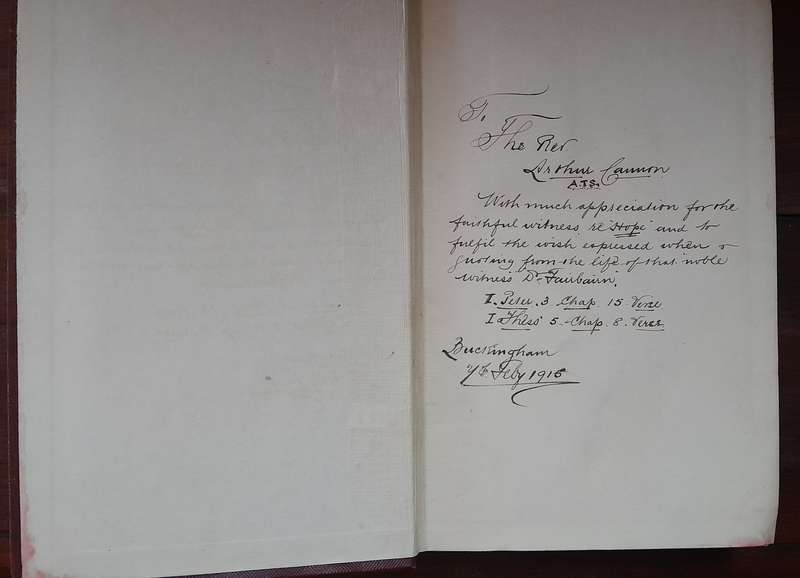 To
The Rev
Arthur Cannon
A.T.S.
With much appreciation for the
faithful witness, re "Hope" and to
fulfil the wish expressed when
quoting from the life of that noble
witness Dr. Fairbairn.
I. Peter. 3 Chap. 15 Verse
I Thess 5 - Chap. 8. Verse.
Buckingham
Feby 1916